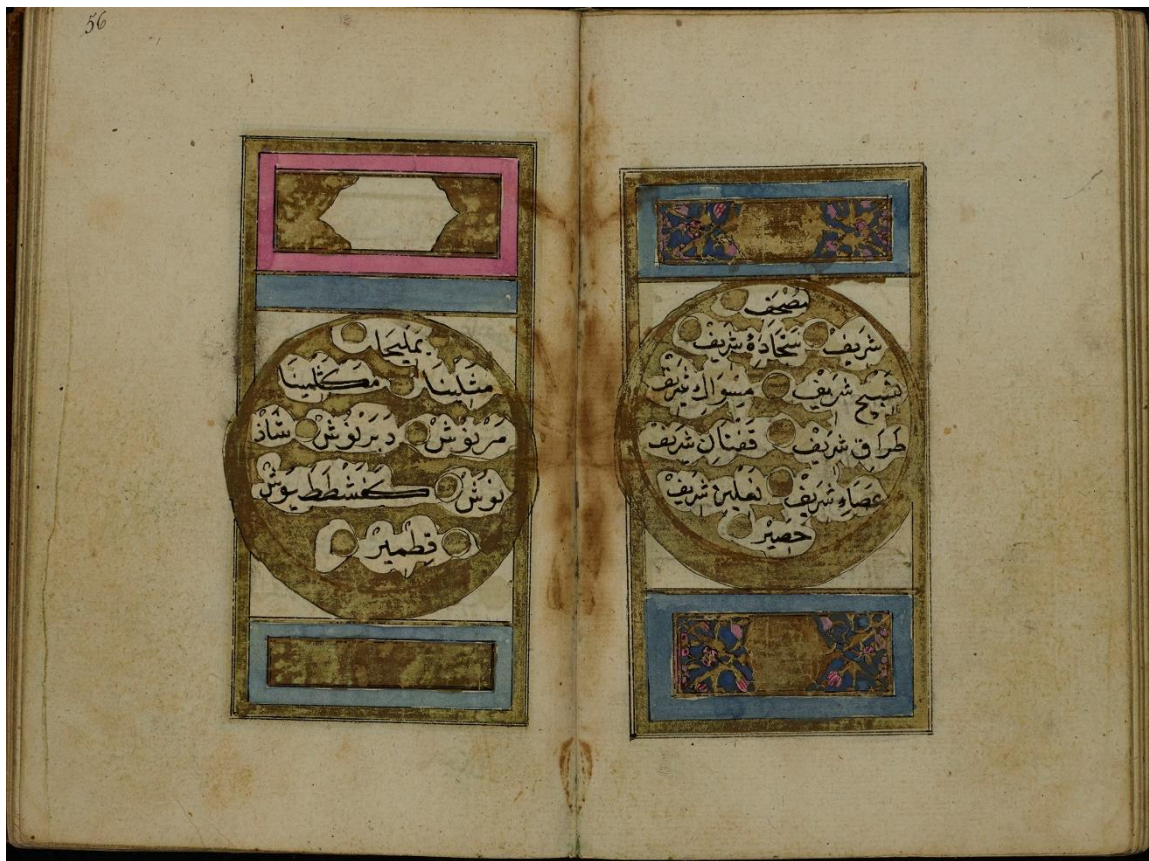 56
مصحف
شريف سجاده شريف
تسبيح شريف مسواك شريف
طراق شريف قفتان شريف
عصاء شريف نعلين شريف
حصير
يمليخا
مثلينا مكثلينا
مرنوش دبرنوش شاذ
نوش كفشططيوش
قطمير